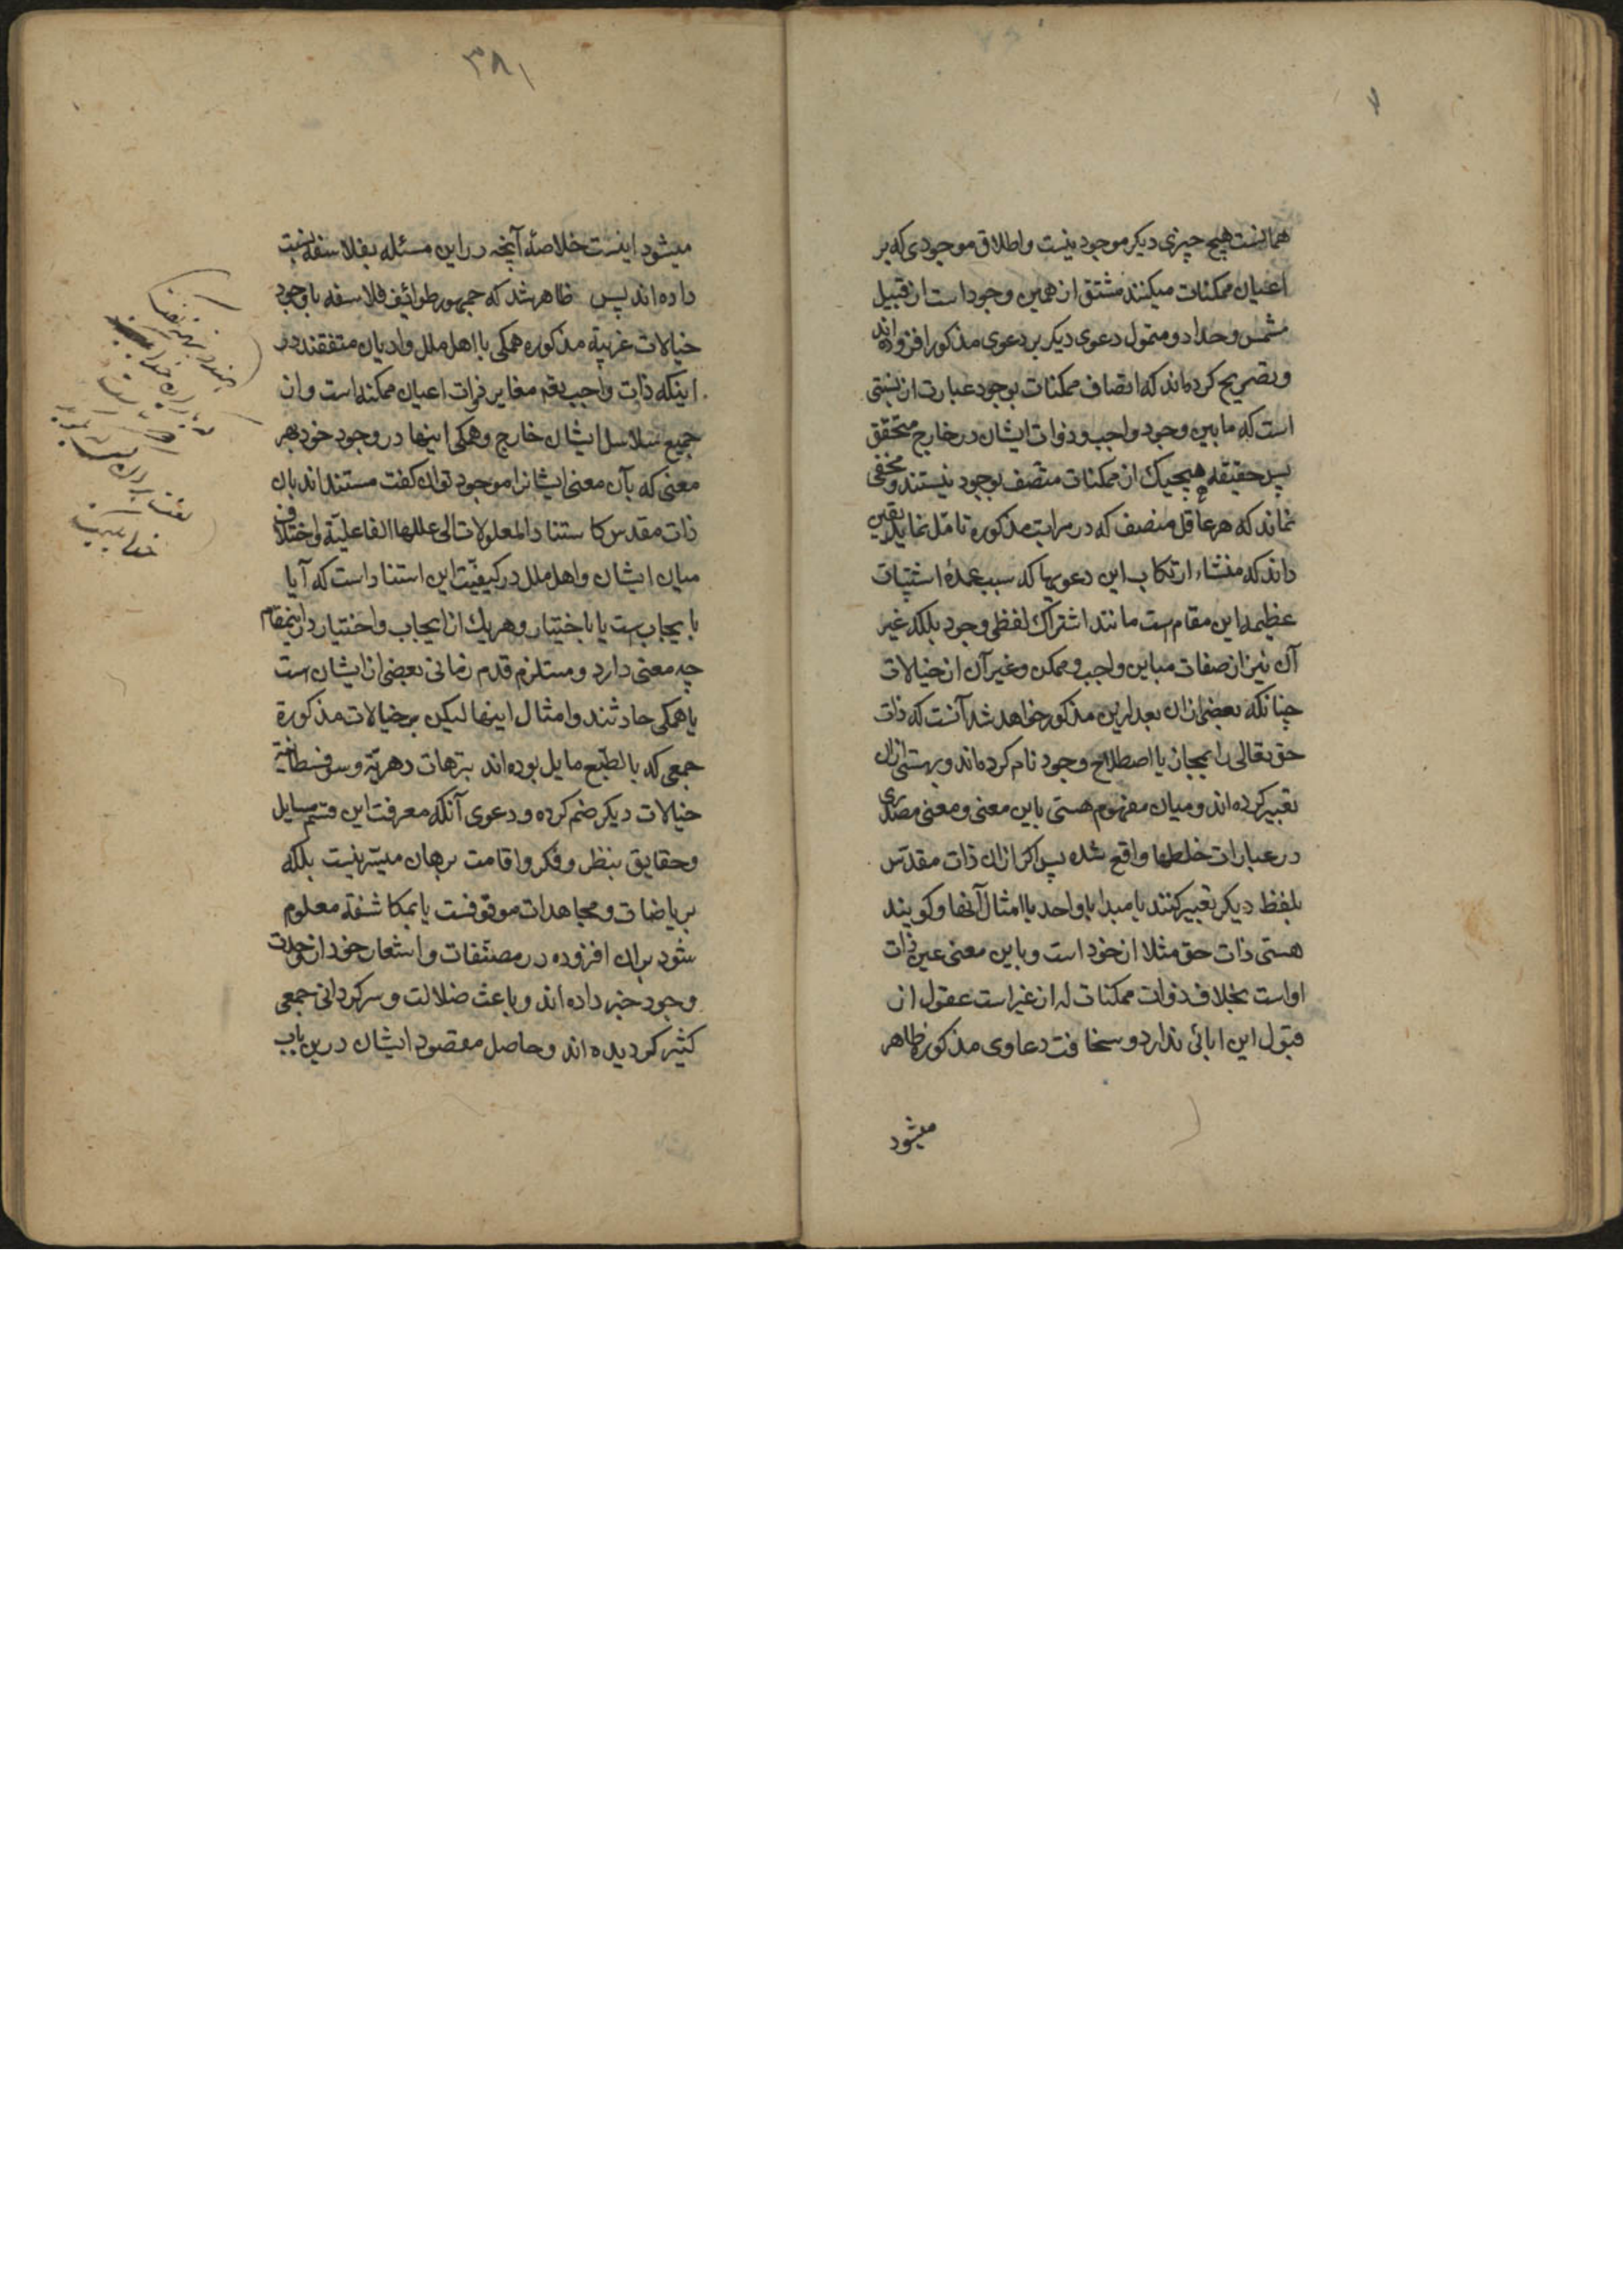 همانست هیچ چیزی دیکر موجود نیست و اطلاق موجودی که بر
اعیان ممکنات میکنند مشتق از همین وجود است از قبیل
مشمس و حداد و متمول دعوی دیکر بر دعوی مذکور افزوده‌اند
و تصریح کرده‌اند که اتصاف ممکنات بوجود عبارت از نسبتی
است که مابین وجود واجب و ذوات ایشان در خارج متحقق
پس حقیقة هیچیک از ممکنات متصف بوجود نیستند و مخفی
نماند که هر عاقل منصف که در مراتب مذکوره تامّل نماید یقین
داند که منشاء ارتکاب این دعویها که سبب عمدهٔ اشتباهات
عظیمه این مقام است مانند اشتراک لفظی وجود بلکه غیر
آن نیز از صفات مباین واجب و ممکن و غیر آن از خیالات
چنانکه بعضی ازان بعد ازین مذکور خواهد شد آنست که ذات
حق تعالی را بمجاز یا اصطلاح وجود نام کرده‌اند و بهستی ازان
تعبیر کرده‌اند و میان مفهوم هستی باین معنی و معنی مصدری
در عبارات خلطها واقع شده پس اکر ازان ذات مقدّس
بلفظ دیکر تعبیر کنند یا مبدا یا واحد یا امثال آنها و کویند
هستی ذات حق مثلا از خود است و باین معنی عین ذات
اواست بخلاف ذوات ممکنات که از غیر است عقول از
قبول این ابائی ندارد و سخافت دعاوی مذکوره ظاهر
میشود
۳۸۱
میشود اینست خلاصهٔ آنچه در این مسئله بفلاسفه نسبت
داده‌اند پس ظاهر شد که جمهور طوائف فلاسفه با وجود
خیالات غریبهٔ مذکوره همکی با اهل ملل و ادیان متفقند در
اینکه ذات واجب تعم مغایر ذوات اعیان ممکنه است و از
جمیع سلاسل ایشان خارج و همکی اینها در وجود خود بهر
معنی که بآن معنی ایشانرا موجود توان کفت مستنداند بان
ذات مقدس کاستناد المعلولات الی عللها الفاعلیّة و اختلاف
میان ایشان و اهل ملل در کیفیّت این استناد است که آیا
بایجاب است یا باختیار و هریک از ایجاب و اختیار در اینمقام
چه معنی دارد و مستلزم قدم زمانی بعضی از ایشان است
یا همکی حادثند و امثال اینها لیکن بر خیالات مذکورة
جمعی که بالطّبع مایل بوده‌اند بترهات دهریّه و سوفسطائیّة
خیالات دیکر ضم کرده و دعوی آنکه معرفت این قسم مسایل
و حقایق بنظر و فکر و اقامت برهان میسّر نیست بلکه
بریاضات و مجاهدات موقوفست یا بمکاشفه معلوم
شود بران افزوده در مصنّفات و اشعار خود از وحدت
وجود خبر داده‌اند و باعث ضلالت و سرکردانی جمعی
کثیر کردیده‌اند و حاصل مقصود ایشان درین باب